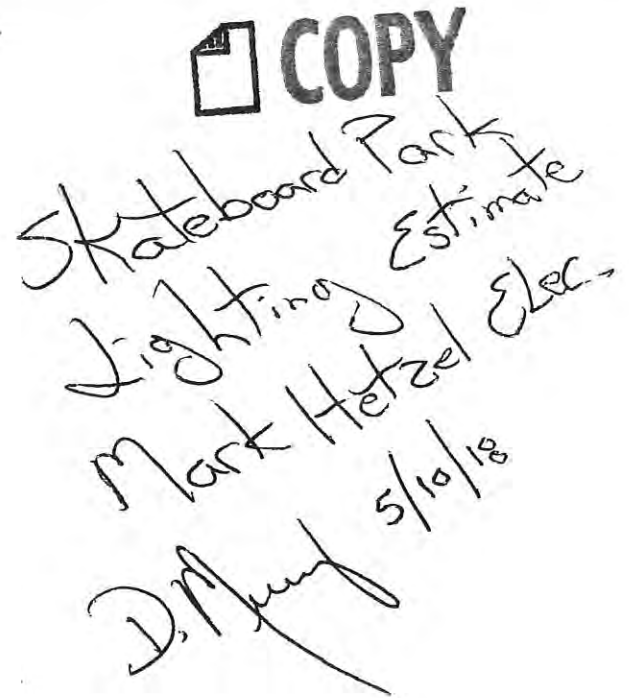 COPY
Skateboard Park
Lighting Estimate
Mark Hetzel Elec.
5/10/18